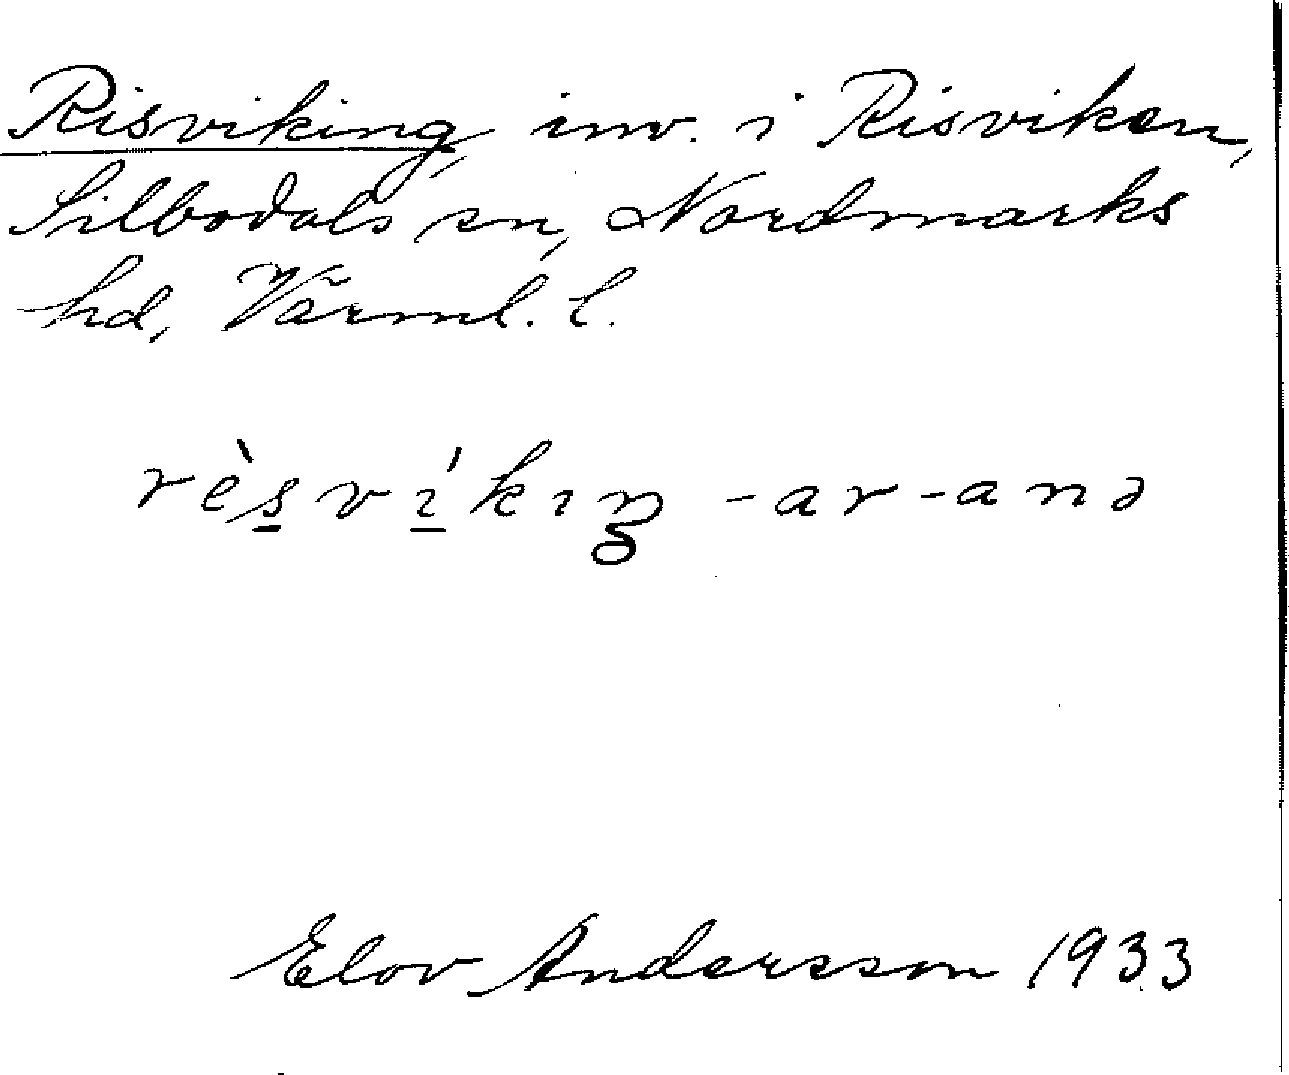 Risviking, inv. i Risviken,
Silbodals sn, Nordmarks
hd, Värml. l.
rèsvíkıŋ -ar -anə
Elov Andersson 1933